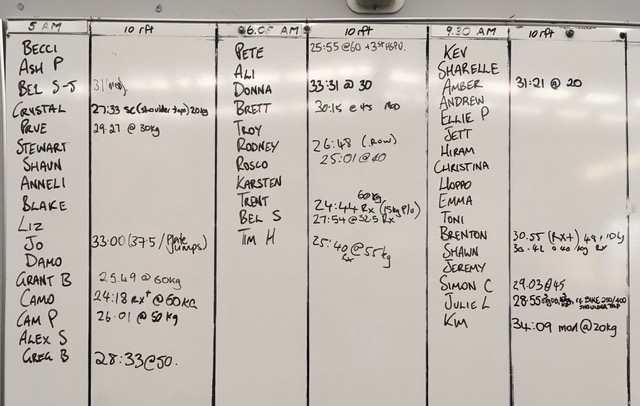 5 AM 10 rft
BECCI
ASH P
BEL S-S 31 mod
CRYSTAL 27:33 SC (shoulder tap) 20kg
PRUE 29.27 @ 30kg
STEWART
SHAUN
ANNELI
BLAKE
LIZ
JO 33:00 (37.5 / Plate Jumps)
DAMO
GRANT B 25.49 @ 60kg
CAMO 24:18 Rx+ @ 60KG
CAM P 26.01 @ 50kg
ALEX S
GREG B 28:33 @ 50.
6.05 AM 10 rft
PETE 25:55 @ 60 + 3
ALI
DONNA 33:31 @ 30
BRETT 30:15 @ 45 MOD
TROY
RODNEY 26:48 (row)
ROSCO 25:01 @ 40
KARSTEN
60kg
TRENT 24:44 Rx (15kg P/O)
BEL S 27:54 @ 32.5 Rx
TIM H 25:40 @ 55kg
Rx
9.30 AM 10 rft
KEV
SHARELLE
AMBER 31:21 @ 20
ANDREW
ELLIE P
JETT
HIRAM
CHRISTINA
HOPPO
EMMA
TONI
BRENTON 30.55 (Rx+)
SHAWN 40 kg Rx
JEREMY
SIMON C 29.03 @ 45
JULIE L 28:55 BIKE 250/200
SHOULDER TAP
KIM 34:09 mod @ 20kg